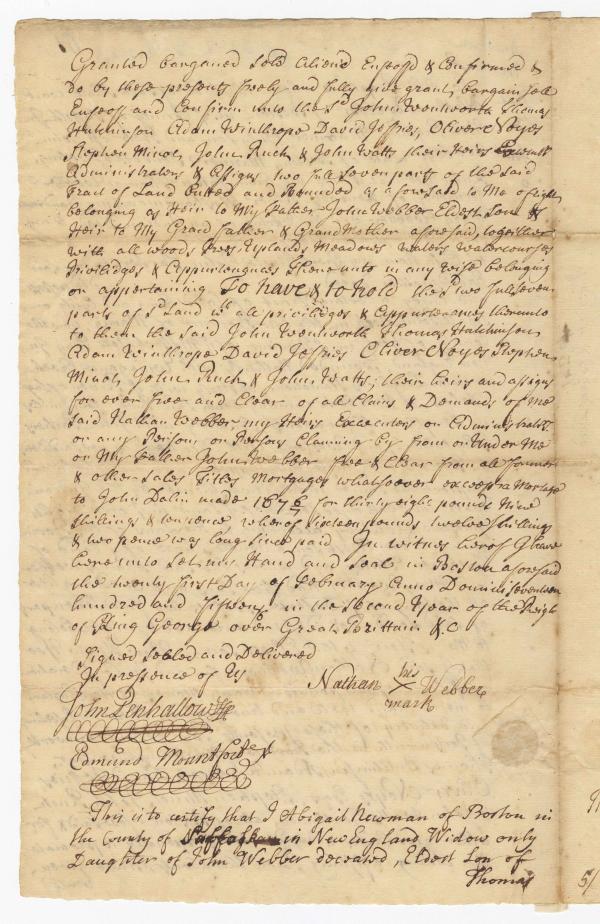 Granted bargained Sold Aliend Enfeofd & Confirmed &
do by these presents freely and fully give grant, bargain sell
Enfeoff and Confirm unto the Sd. John Wentworth Thomas
Hutchinson Adam Winthrope David Jeffries, Oliver Noyes
Stephen Minot, John Ruck & John Watts their Heirs
Administrators & Assigns two full seven parts of the said
Tract of Land butted and Bounded as aforesaid to Me of right
belonging as Heir to My Father John Webber Eldest Son &
Heir to My Grand father & Grand Mother aforesaid, together
with all woods Trees, Uplands Meadows waters watercourses
Priviledges & Appurtenances thereunto in any wise belonging
or appertaining To have & to hold the Sd two full seven
parts of Sd Land wth all priviledges & Appurtenances thereunto
to them the said John Wentworth Thomas Hutchinson
Adam Winthrope David Jeffries Oliver Noyes Stephen
Minot, John Ruck & John Watts, their heirs and assigns
for ever free and Clear of all Claims & Demands of me
said Nathan Webber, my Heirs Executers or Administratrs
or any Person, or Persons Claiming by from or Under Me
or My Father John Webber free & Clear from all former
& other Sales Titles Mortgages whatsoever except a Mortage
to John Dolin made 1676/7 for thirty eight pounds Nine
shillings & tenpence, whereof sixteen pounds twelve shillings
& two pence was long since paid In witness herof I have
hereunto Set my Hand and Seal in Boston aforesaid
the twenty first Day of February Anno Domini seventeen
hundred and fifteen in the second Year of the Reign
of King George over Great Brittain &.C
Signed Sealed and Delivered
In presence of Us
Nathan his X mark Webber
John Penhallow
Edmund Mountfort
This is to certify that I Abigail Newman of Boston in
the County of Suffolk in New England Widow only
Daughter of John Webber deceased, Eldest Son of
Thomas
5/